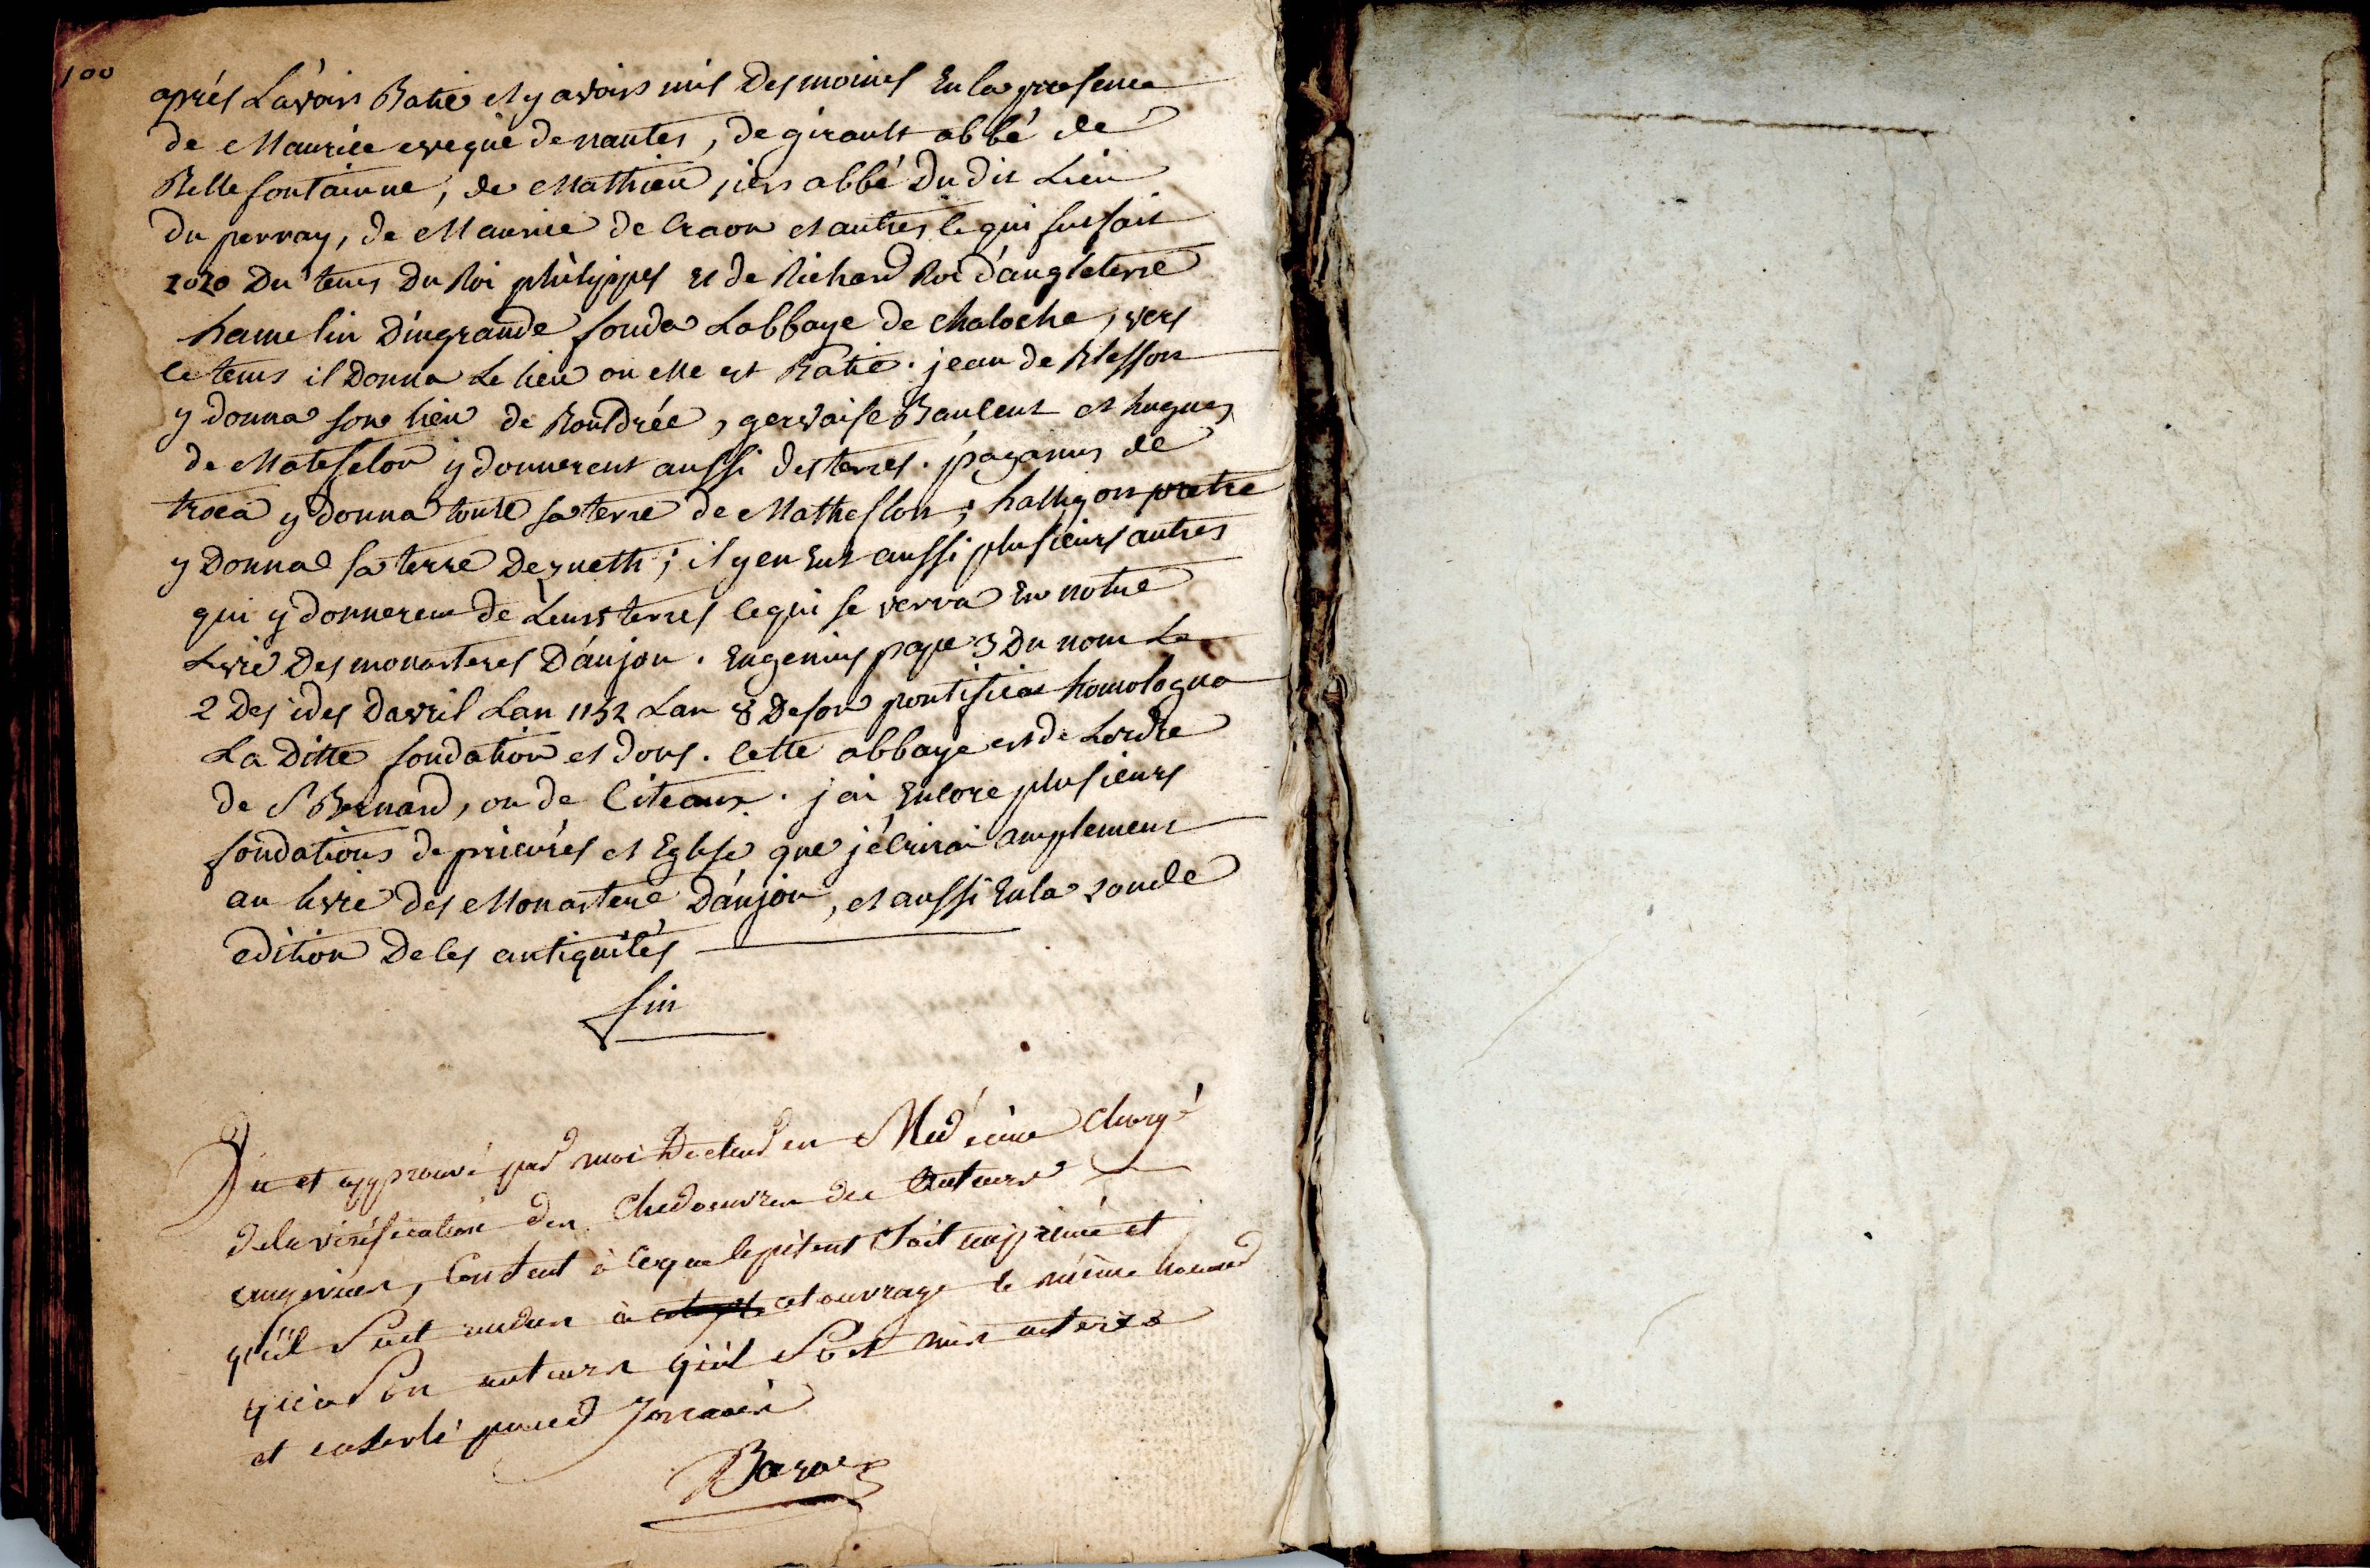 100
aprés L'avoir Batie et y avoir mis Des moines En la presence
de Maurice eveque de nantes, de girault abbé de
Bellefontainne, de Mathieu ier abbé Du dit Lieu
Du perray, de Maurice de Craon et autres ce qui fut fait
1020 Du tems Du Roi philippes Et de Richard Roi d'angleterre
hamelin D'ingrande fonda Labbaye de chaloche, vers
ce tems il Donna Le lieu ou elle est Batie. jean de Blesson
y donna son lieu de Bouldrée, gervaise Baulent et hugues
de Mateselon y donnerent aussi des terres. paganus de
troea y donna toute sa terre de Matheflon; halligon pretre
y Donna sa terre De zneth; il y en Eut aussi plusieurs autres
qui y donnerent de Leurs terres ce qui se verra En notre
Livre Des monasteres D'anjou. Eugenius pape 3 Du nom Le
2 Des ides Davril Lan 1152 Lan 8 De son pontificat homologua
La Ditte fondation et dons. cette abbaye est de Lordre
de S Bernard, ou de Citeaux. j'ai Encore plusieurs
fondations de prieurés et Eglise que j'écrirai amplement
au livre des Monastere D'anjou, et aussi En la 2onde
edition De ces antiquités
fin
Vu et approuvé par moi Docteur en Médecine Chargé
de la vérification des Chedoeuvres des Auteurs
angevins, Consent à ce que le présent Soit imprimé et
qu'il Soit rendu à cet ouvrage le même honneur
qu'à Son auteurs qu'il Soit mis
et par